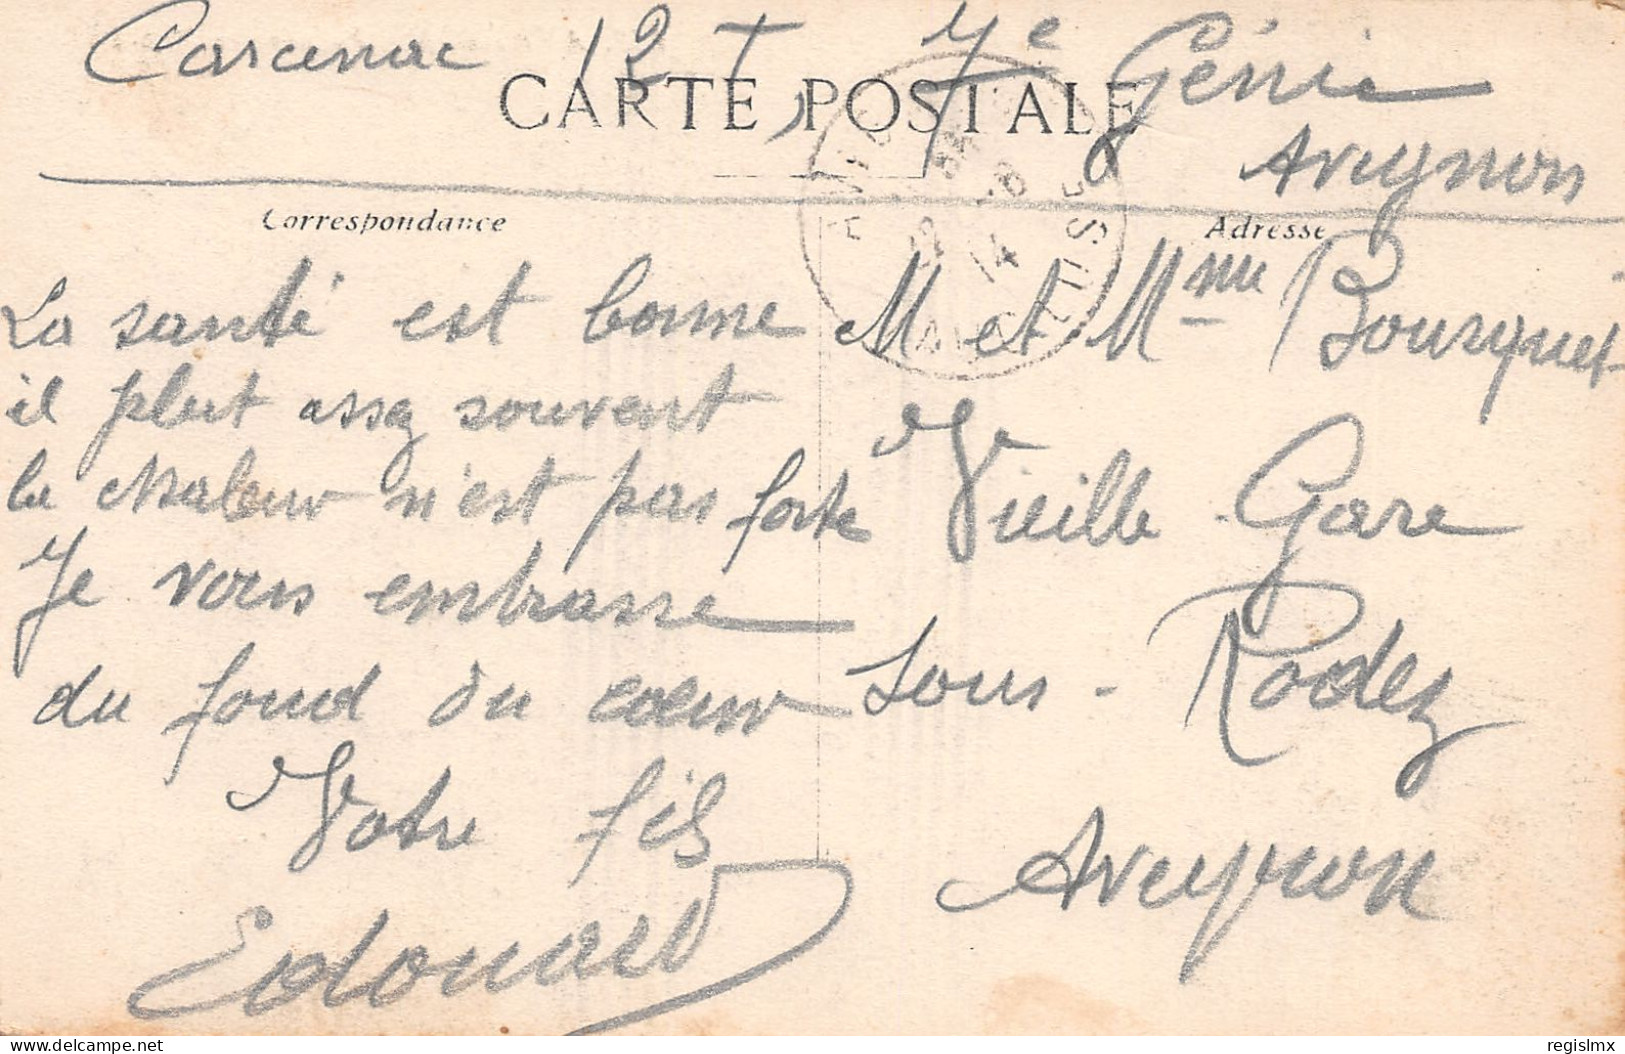 Carcenac 12 T, 7e Génie
Avignon
CARTE POSTALE
Correspondance
Adresse
La santé est bonne
il pleut assez souvent
la chaleur n'est pas forte
Je vous embrasse
du fond du coeur
Votre fils
Edouard
M et Mme Bousquet
Vieille Gare
sous - Rodez
Aveyron
delcampe.net
regislmx